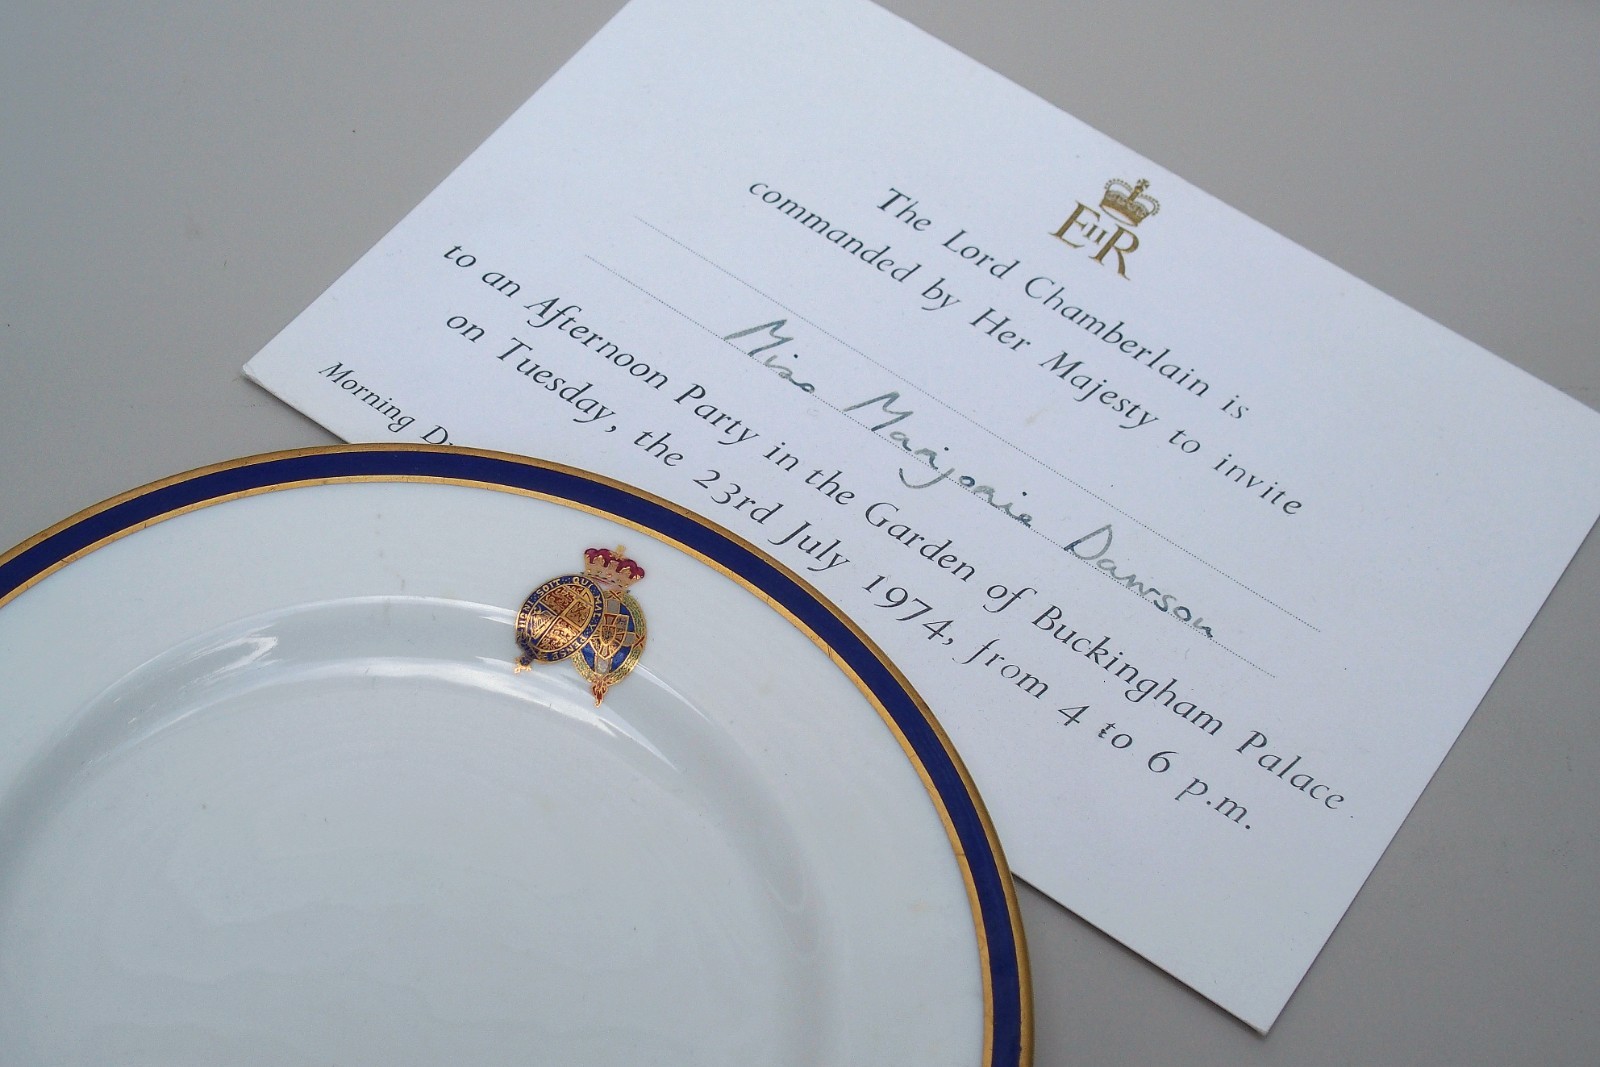 EIIR
The Lord Chamberlain is
commanded by Her Majesty to invite
Miss Marjorie Dawson
to an Afternoon Party in the Garden of Buckingham Palace
on Tuesday, the 23rd July 1974, from 4 to 6 p.m.
Morning
HONI·SOIT·QUI·MAL·Y·PENSE